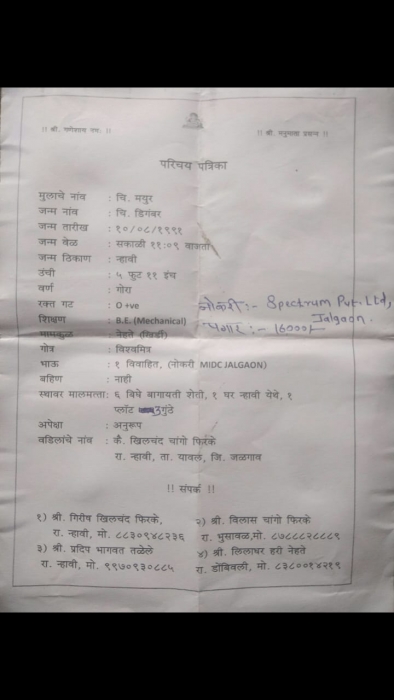 !! श्री. गणेशाय नमः !!
!! श्री. मनुमाता प्रसन्न !!
परिचय पत्रिका
मुलाचे नांव : चि. मयुर
जन्म नांव : चि. डिगंबर
जन्म तारीख : १०/०८/१९९१
जन्म वेळ : सकाळी ११:०९ वाजता
जन्म ठिकाण : न्हावी
उंची : ५ फुट ११ इंच
वर्ण : गोरा
रक्त गट : O +ve
नोकरी :- Spectrum Pvt. Ltd, Jalgaon.
शिक्षण : B.E. (Mechanical)
पगार :- 16000/-
मामकुळ : नेहते (खिर्डी)
गोत्र : विश्वमित्र
भाऊ : १ विवाहित, (नोकरी MIDC JALGAON)
बहिण : नाही
स्थावर मालमत्ता: ६ बिघे बागायती शेती, १ घर न्हावी येथे, १
प्लॉट 3गुंठे
अपेक्षा : अनुरूप
वडिलांचे नांव : कै. खिलचंद चांगो फिरके
रा. न्हावी, ता. यावल, जि. जळगाव
!! संपर्क !!
१) श्री. गिरीष खिलचंद फिरके,
रा. न्हावी, मो. ८८३०९४८२३६
२) श्री. विलास चांगो फिरके
रा. भुसावळ,मो. ८७८८८२८८८९
३) श्री. प्रदिप भागवत तळेले
रा. न्हावी, मो. ९९७०९३०८८५
४) श्री. लिलाधर हरी नेहते
रा. डोंबिवली, मो. ८३८००१४२१९